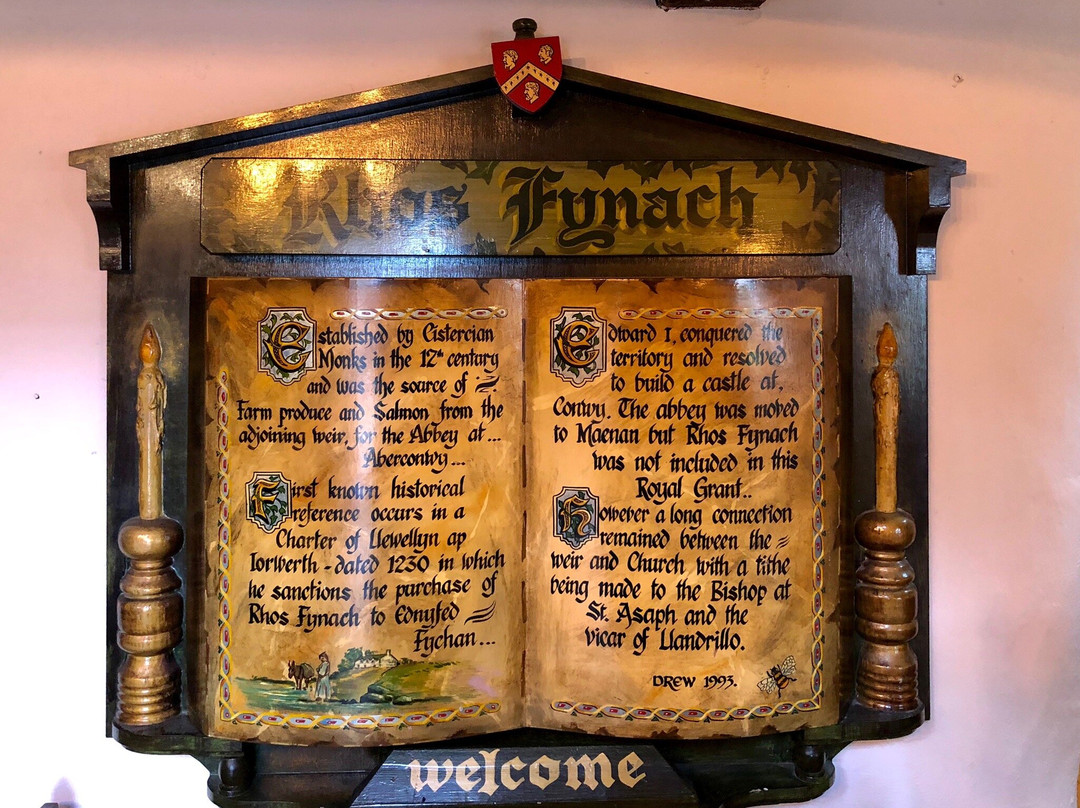 Rhos Fynach
Established by Cistercian
Monks in the 12th century
and was the source of
Farm produce and Salmon from the
adjoining weir, for the Abbey at...
Aberconwy...
First known historical
reference occurs in a
Charter of Llewellyn ap
Iorwerth - dated 1230 in which
he sanctions the purchase of
Rhos Fynach to Ednyfed
Fychan...
Edward I, conquered the
territory and resolved
to build a castle at,
Conwy. The abbey was moved
to Maenan but Rhos Fynach
was not included in this
Royal Grant..
However a long connection
remained between the
weir and Church with a tithe
being made to the Bishop at
St. Asaph and the
vicar of Llandrillo.
DREW 1993.
welcome